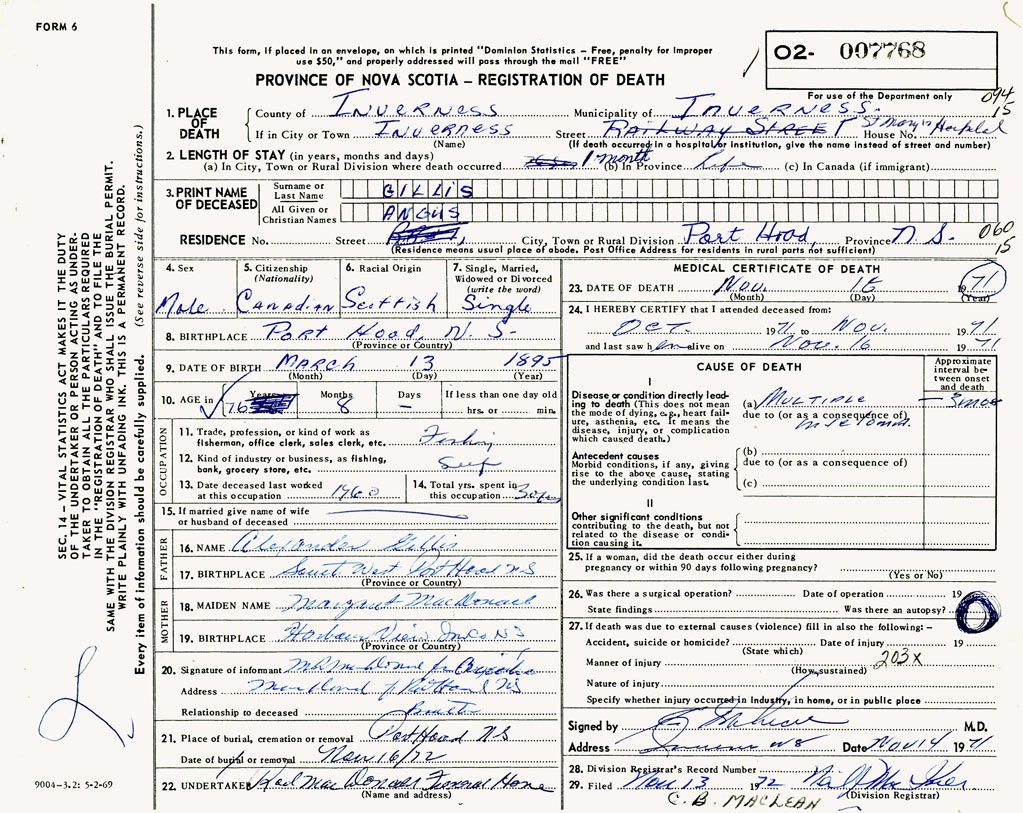 FORM 6
This form, if placed in an envelope, on which is printed "Dominion Statistics – Free, penalty for improper
use $50," and properly addressed will pass through the mail "FREE"
PROVINCE OF NOVA SCOTIA – REGISTRATION OF DEATH
O2- 007768
For use of the Department only
094
15
1. PLACE OF DEATH
County of INVERNESS Municipality of INVERNESS
If in City or Town INVERNESS Street RAILWAY STREET St Mary's Hospital House No.
(Name) (If death occurred in a hospital or institution, give the name instead of street and number)
2. LENGTH OF STAY (in years, months and days)
(a) In City, Town or Rural Division where death occurred 1 month (b) In Province Life (c) In Canada (if immigrant)
3. PRINT NAME OF DECEASED
Surname or Last Name GILLIS
All Given or Christian Names ANGUS
RESIDENCE No. Street City, Town or Rural Division Port Hood, Province N.S.
060
15
(Residence means usual place of abode. Post Office Address for residents in rural parts not sufficient)
4. Sex 5. Citizenship (Nationality) 6. Racial Origin 7. Single, Married, Widowed or Divorced (write the word)
Male Canadian Scottish Single
8. BIRTHPLACE Port Hood, N.S.
(Province or Country)
9. DATE OF BIRTH MARCH 13 1895
(Month) (Day) (Year)
10. AGE in Years 76 Months 8 Days – If less than one day old hrs. or min.
OCCUPATION
11. Trade, profession, or kind of work as fisherman, office clerk, sales clerk, etc. Fishing
12. Kind of industry or business, as fishing, bank, grocery store, etc. Self
13. Date deceased last worked at this occupation 1960
14. Total yrs. spent in this occupation 30 yrs
15. If married give name of wife or husband of deceased
FATHER
16. NAME Alexander Gillis
17. BIRTHPLACE South West Port Hood NS
(Province or Country)
MOTHER
18. MAIDEN NAME Margaret MacDonald
19. BIRTHPLACE Harbour View Inv Co NS
(Province or Country)
20. Signature of informant
Address Port Hood NS
Relationship to deceased
21. Place of burial, cremation or removal Port Hood NS
Date of burial or removal Nov 16/72
22. UNDERTAKER MacDonald Funeral Home
(Name and address)
MEDICAL CERTIFICATE OF DEATH
23. DATE OF DEATH Nov. 16 1971
(Month) (Day) (Year)
24. I HEREBY CERTIFY that I attended deceased from:
OCT. 1971 to Nov. 1971
and last saw him alive on Nov. 16 1971
CAUSE OF DEATH
Approximate interval between onset and death
I
Disease or condition directly leading to death (This does not mean the mode of dying, e.g., heart failure, asthenia, etc. It means the disease, injury, or complication which caused death.)
(a) MULTIPLE 3 mos
due to (or as a consequence of)
Antecedent causes
Morbid conditions, if any, giving rise to the above cause, stating the underlying condition last.
(b)
due to (or as a consequence of)
(c)
II
Other significant conditions
contributing to the death, but not related to the disease or condition causing it.
25. If a woman, did the death occur either during pregnancy or within 90 days following pregnancy?
(Yes or No)
26. Was there a surgical operation? Date of operation 19
State findings Was there an autopsy?
27. If death was due to external causes (violence) fill in also the following: –
Accident, suicide or homicide? Date of injury 19
(State which)
Manner of injury 203X
(How sustained)
Nature of injury
Specify whether injury occurred in Industry, in home, or in public place
Signed by M.D.
Address Inverness NS Date Nov 14 1971
28. Division Registrar's Record Number
29. Filed Nov 13 72
(Division Registrar)
C. B. MACLEAN
SEC. 14 – VITAL STATISTICS ACT MAKES IT THE DUTY
OF THE UNDERTAKER OR PERSON ACTING AS UNDER-
TAKER TO OBTAIN ALL THE PARTICULARS REQUIRED
IN THE "REGISTRATION OF DEATH" AND TO FILE THE
SAME WITH THE DIVISION REGISTRAR WHO SHALL ISSUE THE BURIAL PERMIT.
WRITE PLAINLY WITH UNFADING INK. THIS IS A PERMANENT RECORD.
Every item of information should be carefully supplied. (See reverse side for instructions.)
9004-3.2: 5-2-69